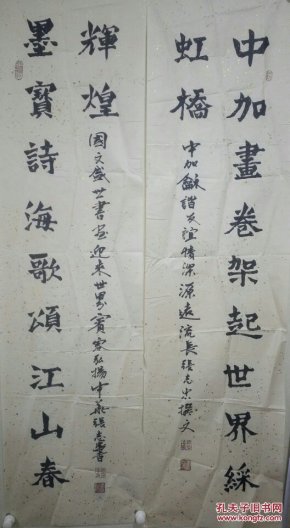 中加畫卷架起世界綵
虹橋
中加龢諧友誼情深源遠流長張志忠撰文
輝煌
國文盛世書畫迎來世界賓客弘揚中華張志書
墨寶詩海歌頌江山春
孔夫子旧书网